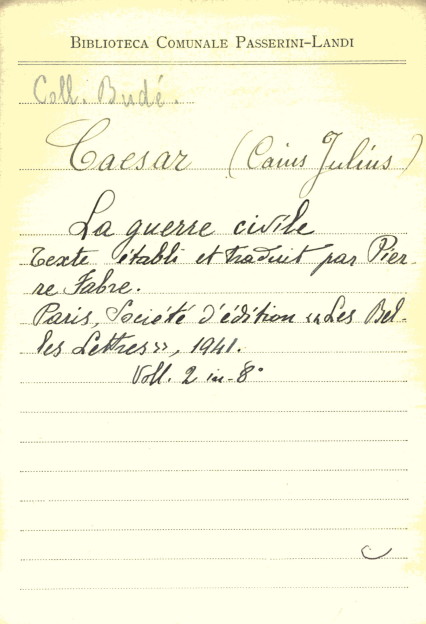 BIBLIOTECA COMUNALE PASSERINI-LANDI
Coll. Budé.
Caesar (Caius Julius)
La guerre civile
Texte établi et traduit par Pier-
re Fabre.
Paris, Société d'édition «Les Bel-
les Lettres», 1941.
Voll. 2 in-8°